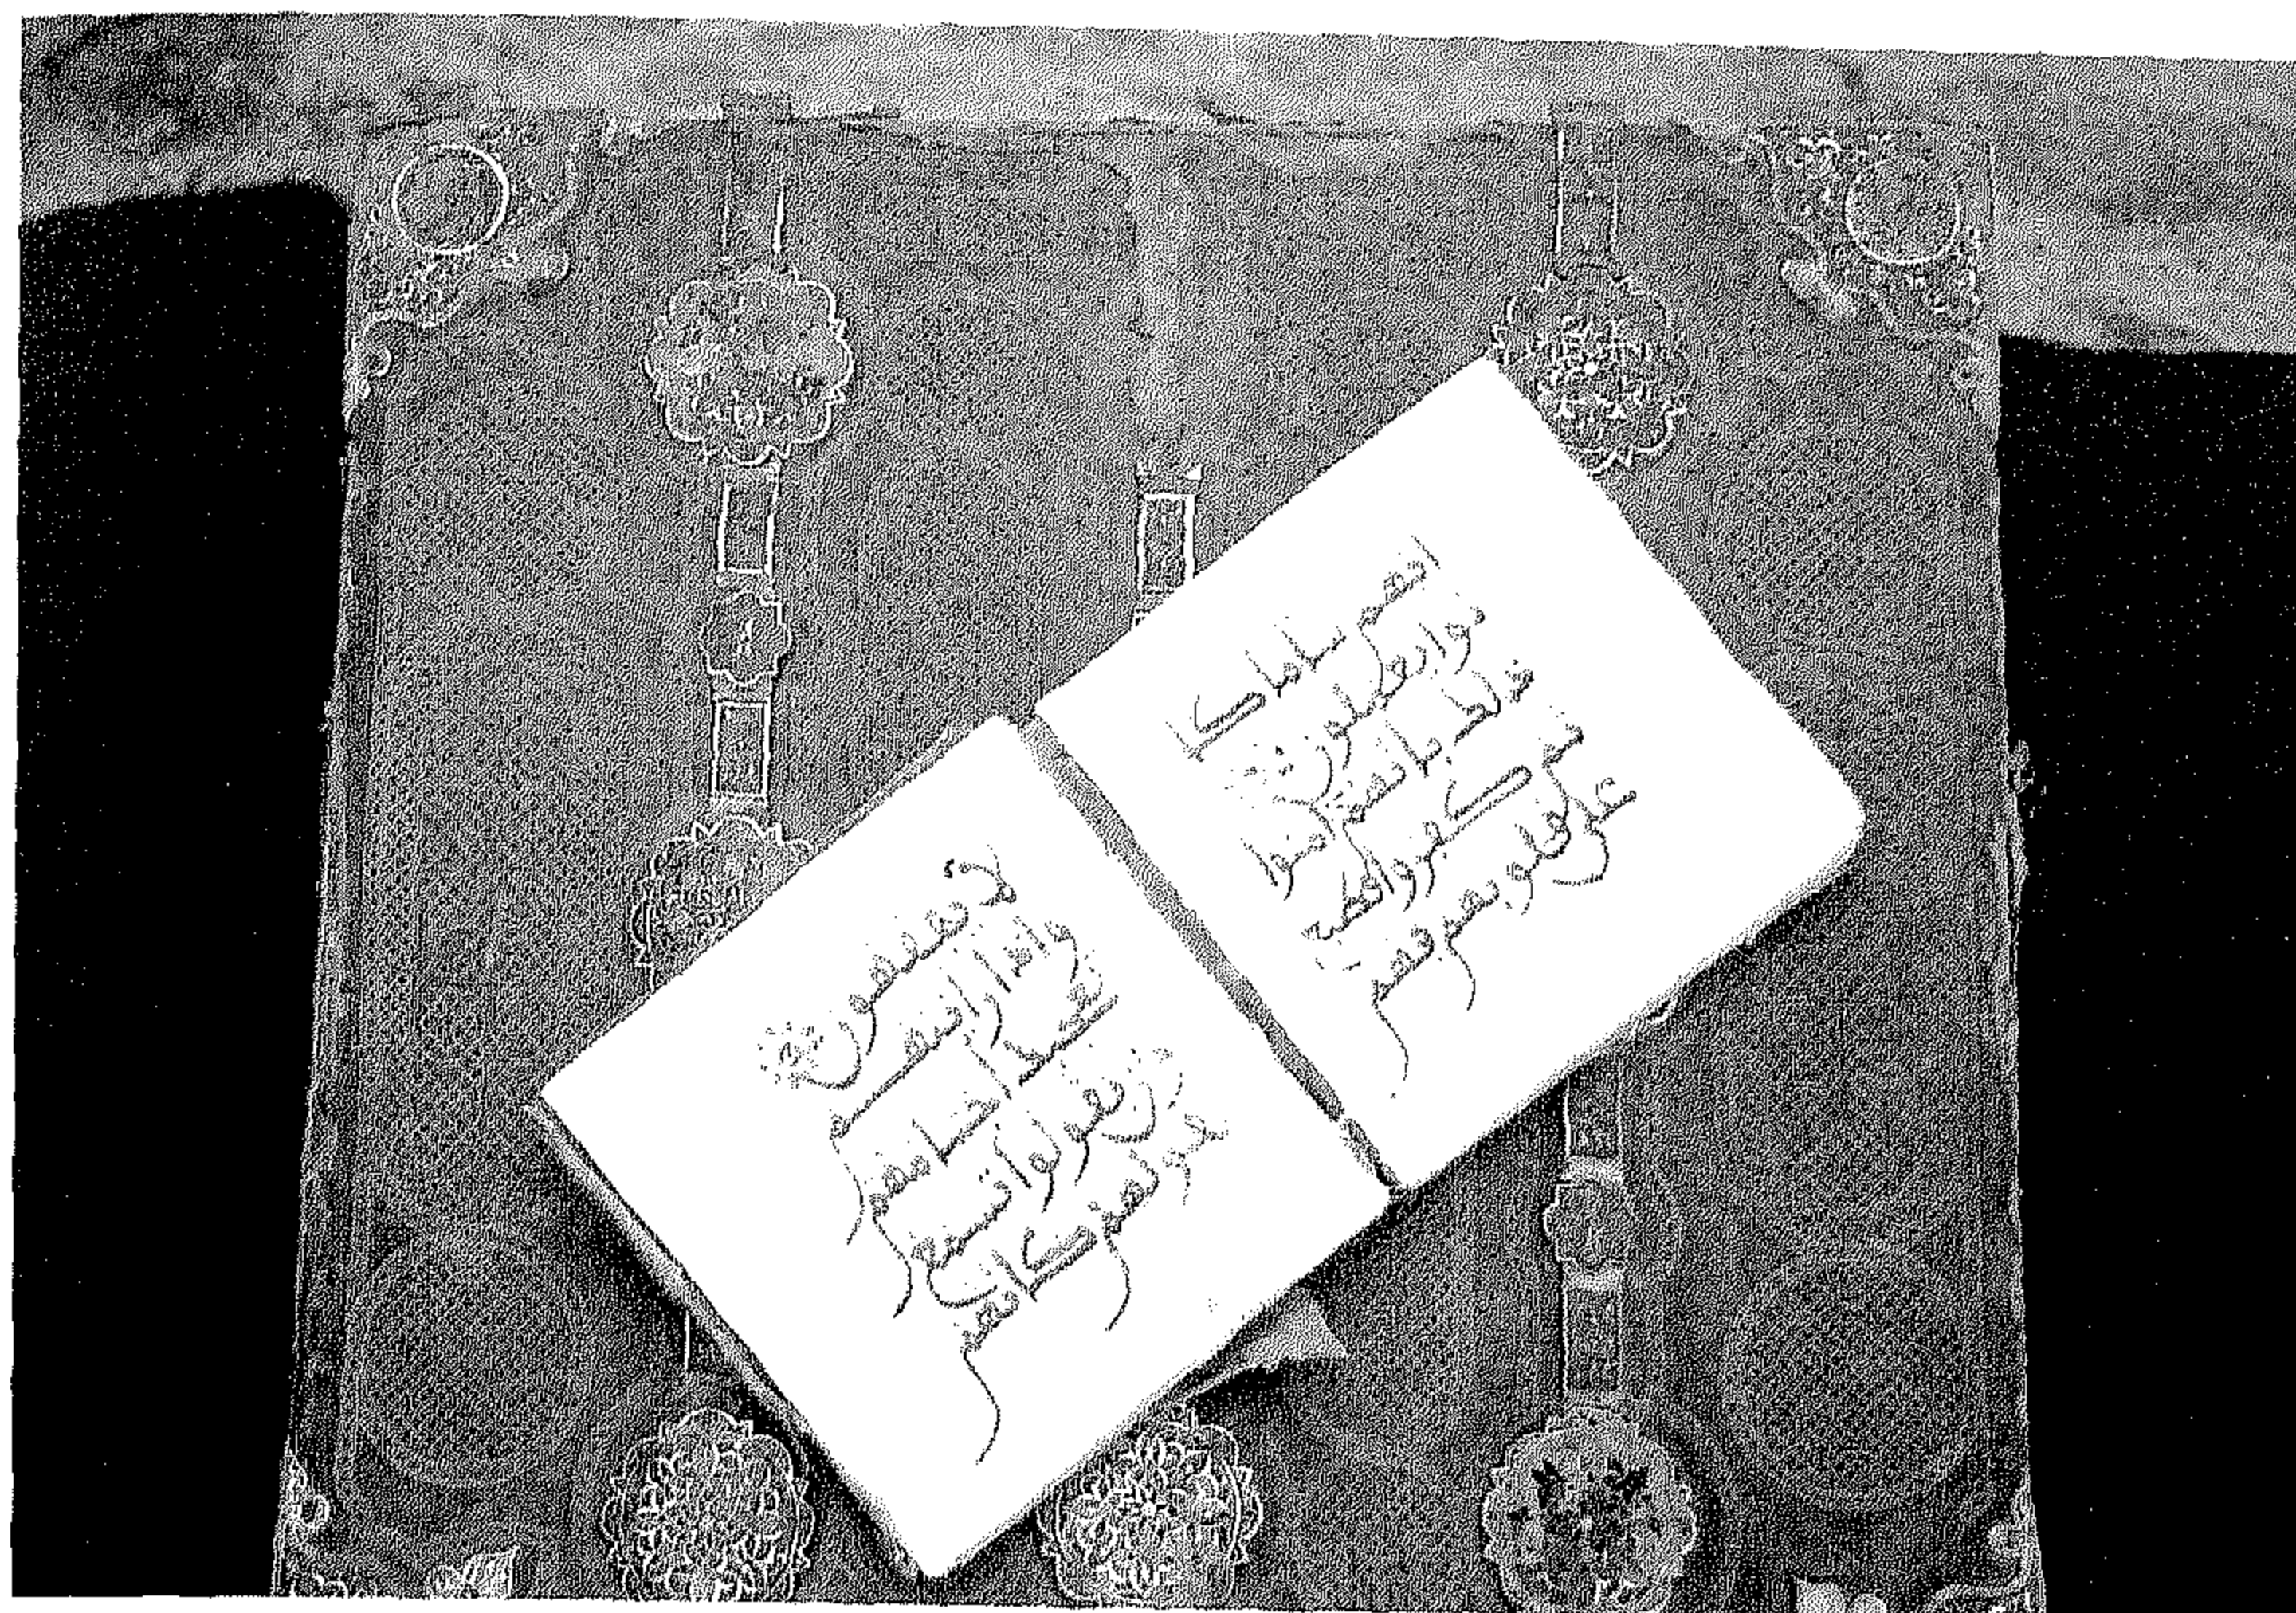 انهم ساما كا
نوا يعملون
ذلك بانهم امنوا
ثم كفروا فطبع
على قلوبهم فهم
لا يفقهون
واذا رايتهم
تعجبك اجسامهم
وان يقولوا تسمع
لقولهم كانهم